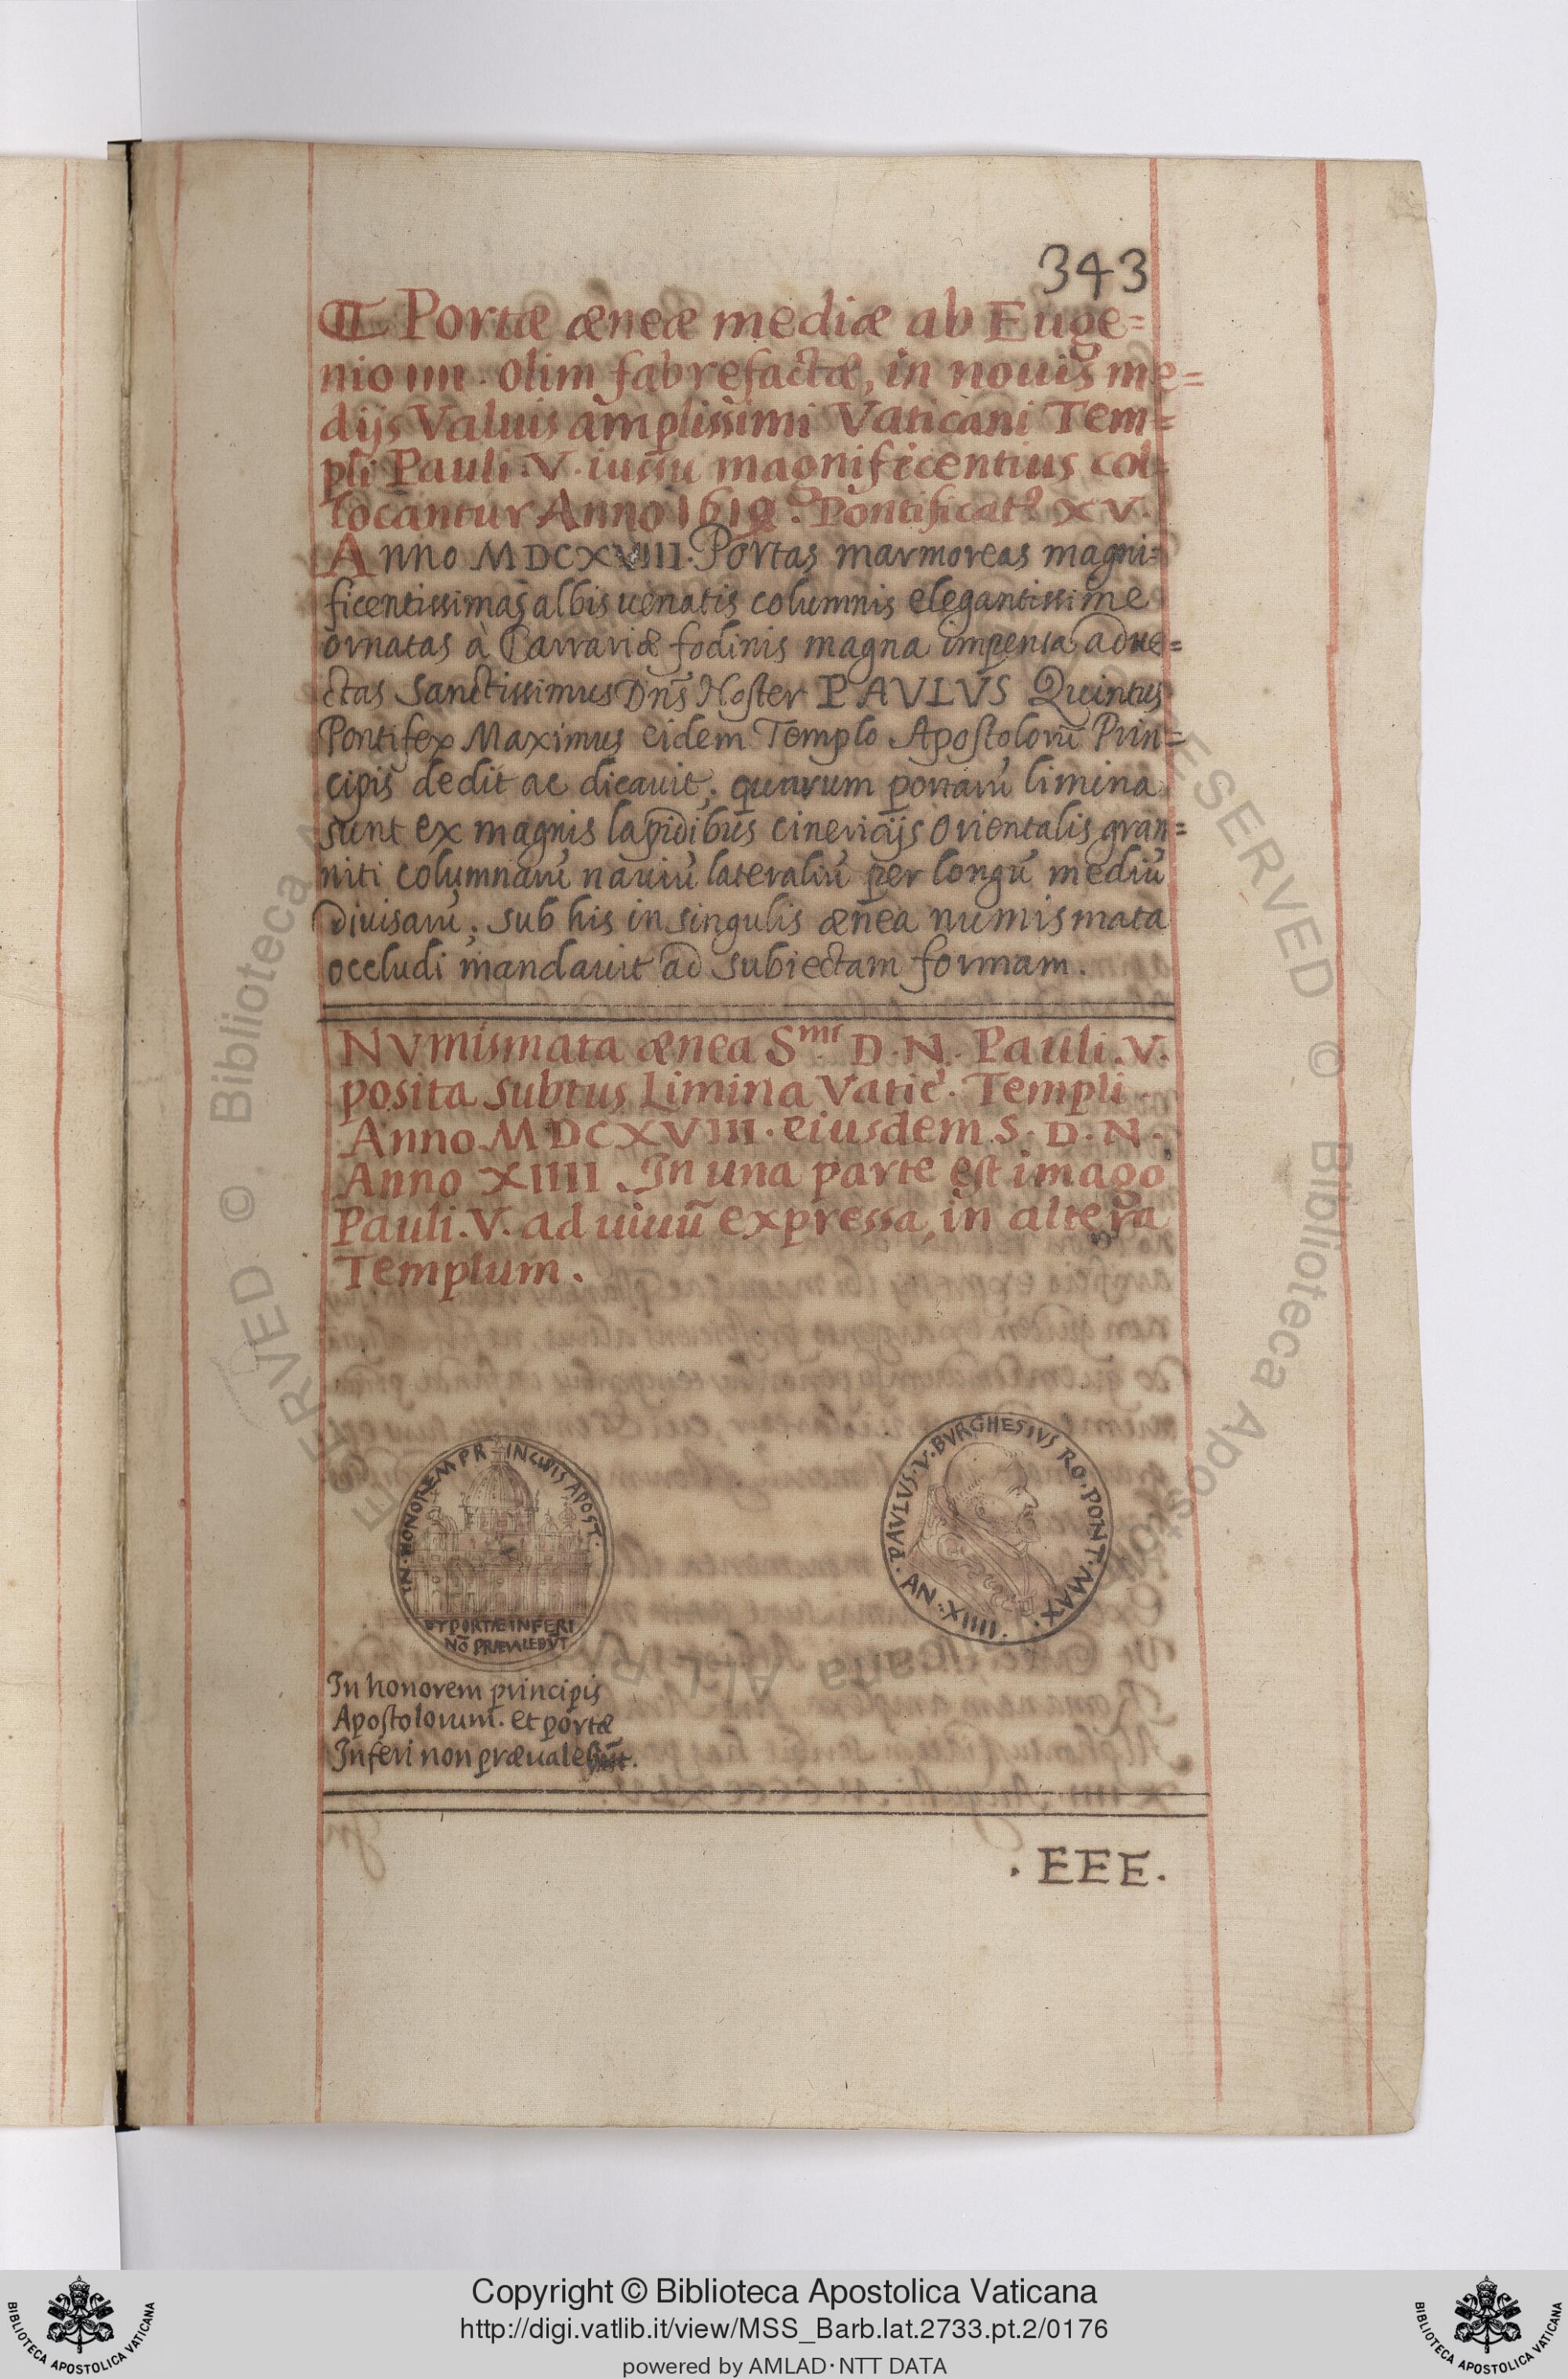 343
Portæ æneæ mediæ ab Euge=
nio IIII. olim fabrefactæ, in nouis me=
dijs Valuis amplissimi Vaticani Tem=
pli Pauli.V. iussu magnificentius col=
locantur Anno 1619. Pontificatꝰ XV.
Anno MDCXVIII. Portas marmoreas magni=
ficentissimas albis uenatis columnis elegantissime
ornatas à Carrariæ fodinis magna impensa adue=
ctas Sanctissimus Dñs Noster PAVLVS Quintus
Pontifex Maximus eidem Templo Apostolorũ Prin=
cipis dedit ac dicauit; quarum portarũ limina
sunt ex magnis lapidibus cinericijs orientalis gran=
niti columnarũ nauiũ lateraliũ per longũ mediũ
diuisarũ; sub his in singulis ænea numismata
occludi mandauit ad subiectam formam.
NVmismata ænea S.mi D.N. Pauli.V.
posita subtus Limina Vatic. Templi.
Anno MDCXVIII. eiusdem S.D.N.
Anno XIIII. In una parte est imago
Pauli.V. ad uiuũ expressa, in altera
Templum.
IN.HONOREM PRINCIPIS APOST.
ET PORTÆ INFERI
NÕ PRÆVALEBVT
PAVLVS.V.BVRGHESIVS RO.PONT.MAX.
AN.XIIII.
In honorem principis
Apostolorum. et portæ
Inferi non præualebunt.
.EEE.
© Biblioteca Apostolica Vaticana ALL RIGHTS RESERVED
BIBLIOTECA APOSTOLICA VATICANA
Copyright © Biblioteca Apostolica Vaticana
http://digi.vatlib.it/view/MSS_Barb.lat.2733.pt.2/0176
powered by AMLAD·NTT DATA
BIBLIOTECA APOSTOLICA VATICANA